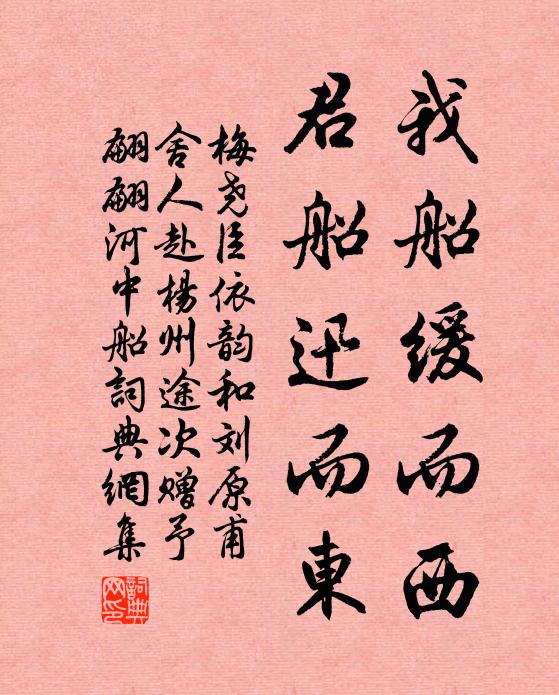 我船缓而西
君船迅而東
梅尧臣依韵和刘原甫
舍人赴楊州途次赠予
翩翩河中船詞典網集
詞典網印